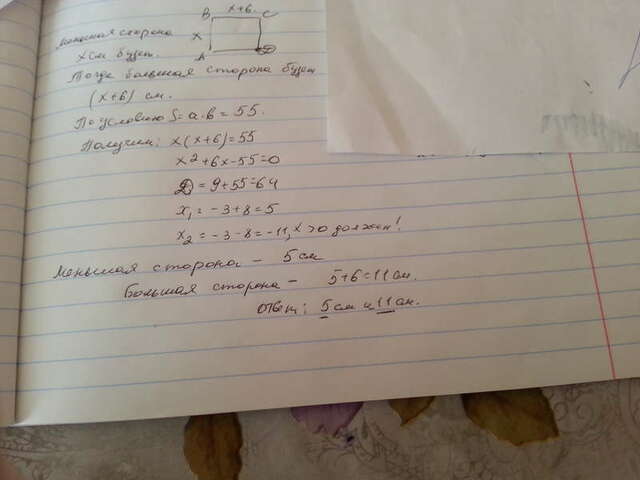 B x+6 C
меньшая сторона x
x см будет. A D
Тогда большая сторона будет
(x+6) см.
По условию S=a·b=55.
Получим: x(x+6)=55
x²+6x-55=0
D=9+55=64
x₁=-3+8=5
x₂=-3-8=-11, x>0 должен!
Меньшая сторона - 5 см
Большая сторона - 5+6=11 см.
Ответ: 5 см и 11 см.